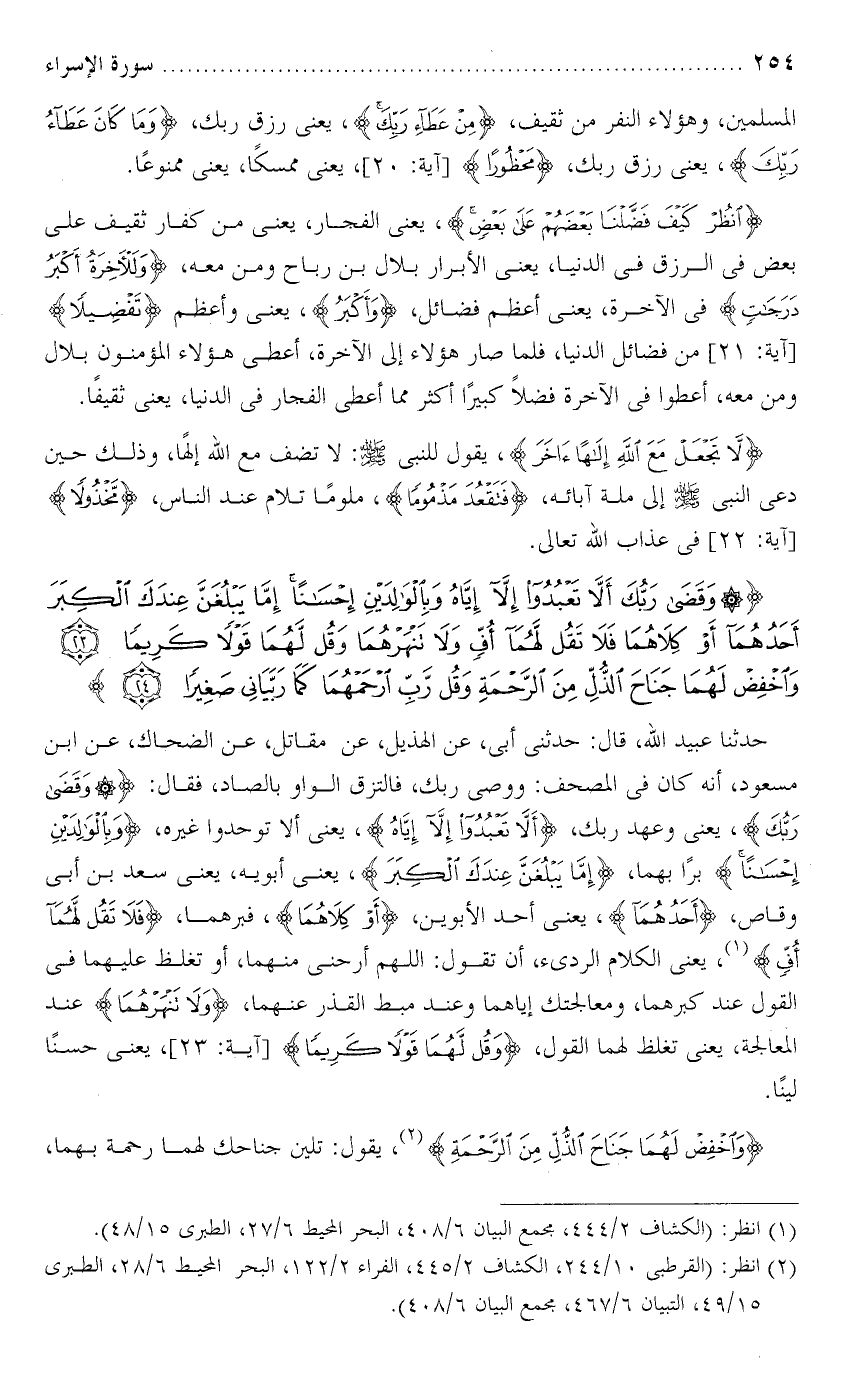 ٢٥٤ ........................................................................ سورة الإسراء
المسلمين، وهؤلاء النفر من ثقيف، ﴿مِنْ عَطَآءِ رَبِّكَۚ﴾، يعنى رزق ربك، ﴿وَمَا كَانَ عَطَآءُ
رَبِّكَ﴾، يعنى رزق ربك، ﴿مَحْظُورًا﴾ [آية: ٢٠]، يعنى ممسكًا، يعنى ممنوعًا.
﴿ٱنظُرْ كَيْفَ فَضَّلْنَا بَعْضَهُمْ عَلَىٰ بَعْضٍۚ﴾، يعنى الفجار، يعنى من كفار ثقيف على
بعض فى الرزق فى الدنيا، يعنى الأبرار بلال بن رباح ومن معه، ﴿وَلَلْأٓخِرَةُ أَكْبَرُ
دَرَجَٰتٍ﴾ فى الآخرة، يعنى أعظم فضائل، ﴿وَأَكْبَرُ﴾، يعنى وأعظم ﴿تَفْضِيلًا﴾
[آية: ٢١] من فضائل الدنيا، فلما صار هؤلاء إلى الآخرة، أعطى هؤلاء المؤمنون بلال
ومن معه، أعطوا فى الآخرة فضلاً كبيرًا أكثر مما أعطى الفجار فى الدنيا، يعنى ثقيفًا.
﴿لَّا تَجْعَلْ مَعَ ٱللَّهِ إِلَٰهًا ءَاخَرَ﴾، يقول للنبى ﷺ: لا تضف مع الله إلهًا، وذلك حين
دعى النبى ﷺ إلى ملة آبائه، ﴿فَتَقْعُدَ مَذْمُومًا﴾، ملومًا تلام عند الناس، ﴿مَّخْذُولًا﴾
[آية: ٢٢] فى عذاب الله تعالى.
﴿۞ وَقَضَىٰ رَبُّكَ أَلَّا تَعْبُدُوٓا۟ إِلَّآ إِيَّاهُ وَبِٱلْوَٰلِدَيْنِ إِحْسَٰنًاۚ إِمَّا يَبْلُغَنَّ عِندَكَ ٱلْكِبَرَ
أَحَدُهُمَآ أَوْ كِلَاهُمَا فَلَا تَقُل لَّهُمَآ أُفٍّ وَلَا تَنْهَرْهُمَا وَقُل لَّهُمَا قَوْلًا كَرِيمًا ۝٢٣
وَٱخْفِضْ لَهُمَا جَنَاحَ ٱلذُّلِّ مِنَ ٱلرَّحْمَةِ وَقُل رَّبِّ ٱرْحَمْهُمَا كَمَا رَبَّيَانِى صَغِيرًا ۝٢٤ ﴾
حدثنا عبيد الله، قال: حدثنى أبى، عن الهذيل، عن مقاتل، عن الضحاك، عن ابن
مسعود، أنه كان فى المصحف: ووصى ربك، فالتزق الواو بالصاد، فقال: ﴿۞ وَقَضَىٰ
رَبُّكَ﴾، يعنى وعهد ربك، ﴿أَلَّا تَعْبُدُوٓا۟ إِلَّآ إِيَّاهُ﴾، يعنى ألا توحدوا غيره، ﴿وَبِٱلْوَٰلِدَيْنِ
إِحْسَٰنًاۚ﴾ برًا بهما، ﴿إِمَّا يَبْلُغَنَّ عِندَكَ ٱلْكِبَرَ﴾، يعنى أبويه، يعنى سعد بن أبى
وقاص، ﴿أَحَدُهُمَآ﴾، يعنى أحد الأبوين، ﴿أَوْ كِلَاهُمَا﴾، فبرهما، ﴿فَلَا تَقُل لَّهُمَآ
أُفٍّ﴾(١)، يعنى الكلام الردىء، أن تقول: اللهم أرحنى منهما، أو تغلظ عليهما فى
القول عند كبرهما، ومعالجتك إياهما وعند مبط القذر عنهما، ﴿وَلَا تَنْهَرْهُمَا﴾ عند
المعالجة، يعنى تغلظ لهما القول، ﴿وَقُل لَّهُمَا قَوْلًا كَرِيمًا﴾ [آية: ٢٣]، يعنى حسنًا
لينًا.
﴿وَٱخْفِضْ لَهُمَا جَنَاحَ ٱلذُّلِّ مِنَ ٱلرَّحْمَةِ﴾(٢)، يقول: تلين جناحك لهما رحمة بهما،
(١) انظر: (الكشاف ٤٤٤/٢، مجمع البيان ٤٠٨/٦، البحر المحيط ٢٧/٦، الطبرى ٤٨/١٥).
(٢) انظر: (القرطبى ٢٤٤/١٠، الكشاف ٤٤٥/٢، الفراء ١٢٢/٢، البحر المحيط ٢٨/٦، الطبرى
٤٩/١٥، التبيان ٤٦٧/٦، مجمع البيان ٤٠٨/٦).